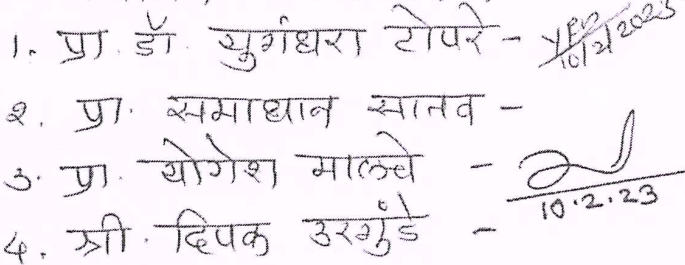 1. प्रा. डॉ. युगंधरा टोपरे - 10/2/2023
२. प्रा. समाधान सानव -
3. प्रा. योगेश माळचे - 10.2.23
4. श्री. दिपक उरगुंडे -